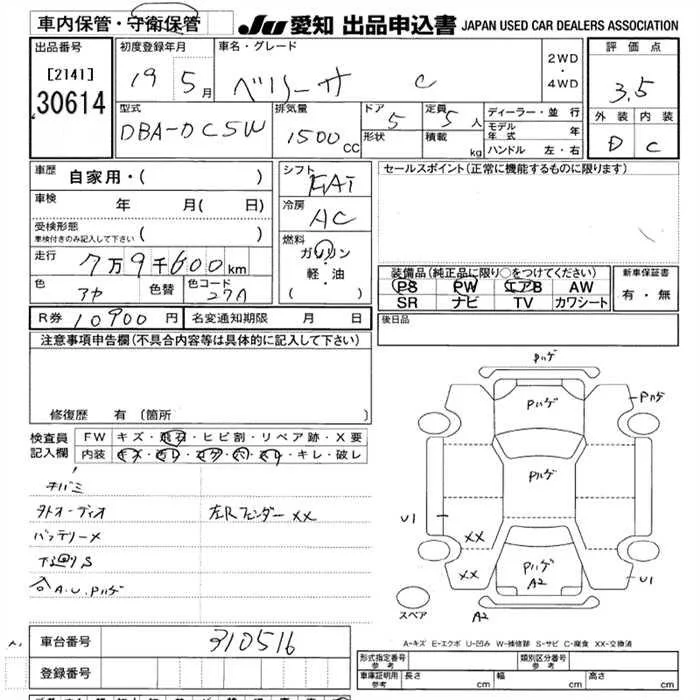 車内保管・守衛保管
JU 愛知 出品申込書 JAPAN USED CAR DEALERS ASSOCIATION
出品番号 初度登録年月 車名・グレード 2WD・4WD 評価点
[2141] 30614
19 5月 ベリーサ C 3.5
外装 内装
D C
型式 排気量 ドア 定員 ディーラー・並行
DBA-DC5W 1500cc 5 5人
形状 積載 kg モデル年式 年
ハンドル 左・右
車歴 自家用・( ) シフト FAT セールスポイント(正常に機能するものに限ります)
車検 年 月( 日) 冷房 AC
受検形態
車検付きのみ記入して下さい
燃料 ガソリン・軽・油 ( )
走行 7万9千600km
色 アカ 色替 色コード 27A
装備品(純正品に限り○をつけてください) 新車保証書
PS PW エアB AW 有・無
SR ナビ TV カワシート
R券 10900円 名変通知期限 月 日 後日品
注意事項申告欄(不具合内容等は具体的に記入して下さい)
修復歴 有(箇所 )
検査員 記入欄
FW キズ・飛石・ヒビ割・リペア跡・X要
内装 キズ・汚レ・コゲ・穴・スレ・キレ・破レ
キバミ
外オーディオ 左Rフェンダー XX
バッテリーメ
下廻りS
合 A.U.Pハゲ
Pハゲ
Pハゲ Pハゲ
Pハゲ
U1 XX
XX Pハゲ A2 U1
スペア A2
A-キズ E-エクボ U-凹み W-補修跡 S-サビ C-腐食 XX-交換済
車台番号 310516
登録番号
形式指定番号 参考 類別区分番号 参考
車庫証明用 参考 長さ cm 幅 cm 高さ cm